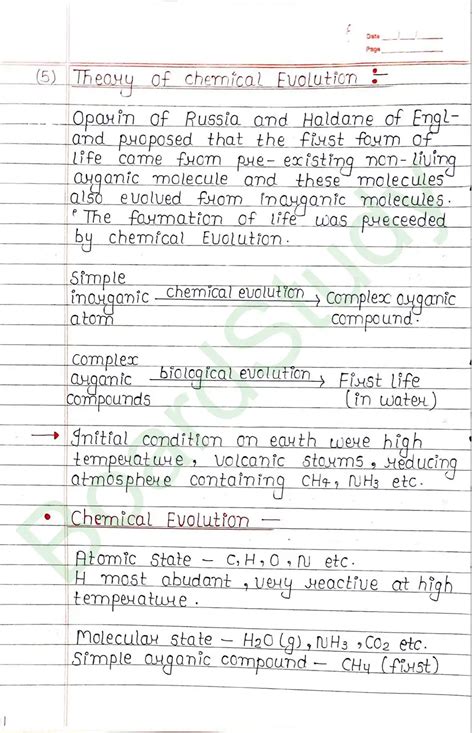 Date / /
Page
(5) Theory of chemical Evolution :-
Oparin of Russia and Haldane of Engl-
and proposed that the first form of
life came from pre- existing non-living
organic molecule and these molecules
also evolved from inorganic molecules.
"The formation of life was preceeded
by chemical Evolution.
Simple
inorganic chemical evolution → complex organic
atom compound.
complex
organic biological evolution → First life
compounds (in water)
→ Initial condition on earth were high
temperature, volcanic storms, reducing
atmosphere containing CH4, NH3 etc.
• Chemical Evolution —
Atomic state – C, H, O, N etc.
H most abudant, very reactive at high
temperature.
Molecular state – H2O (g), NH3, CO2 etc.
Simple organic compound – CH4 (first)
BoardStudy